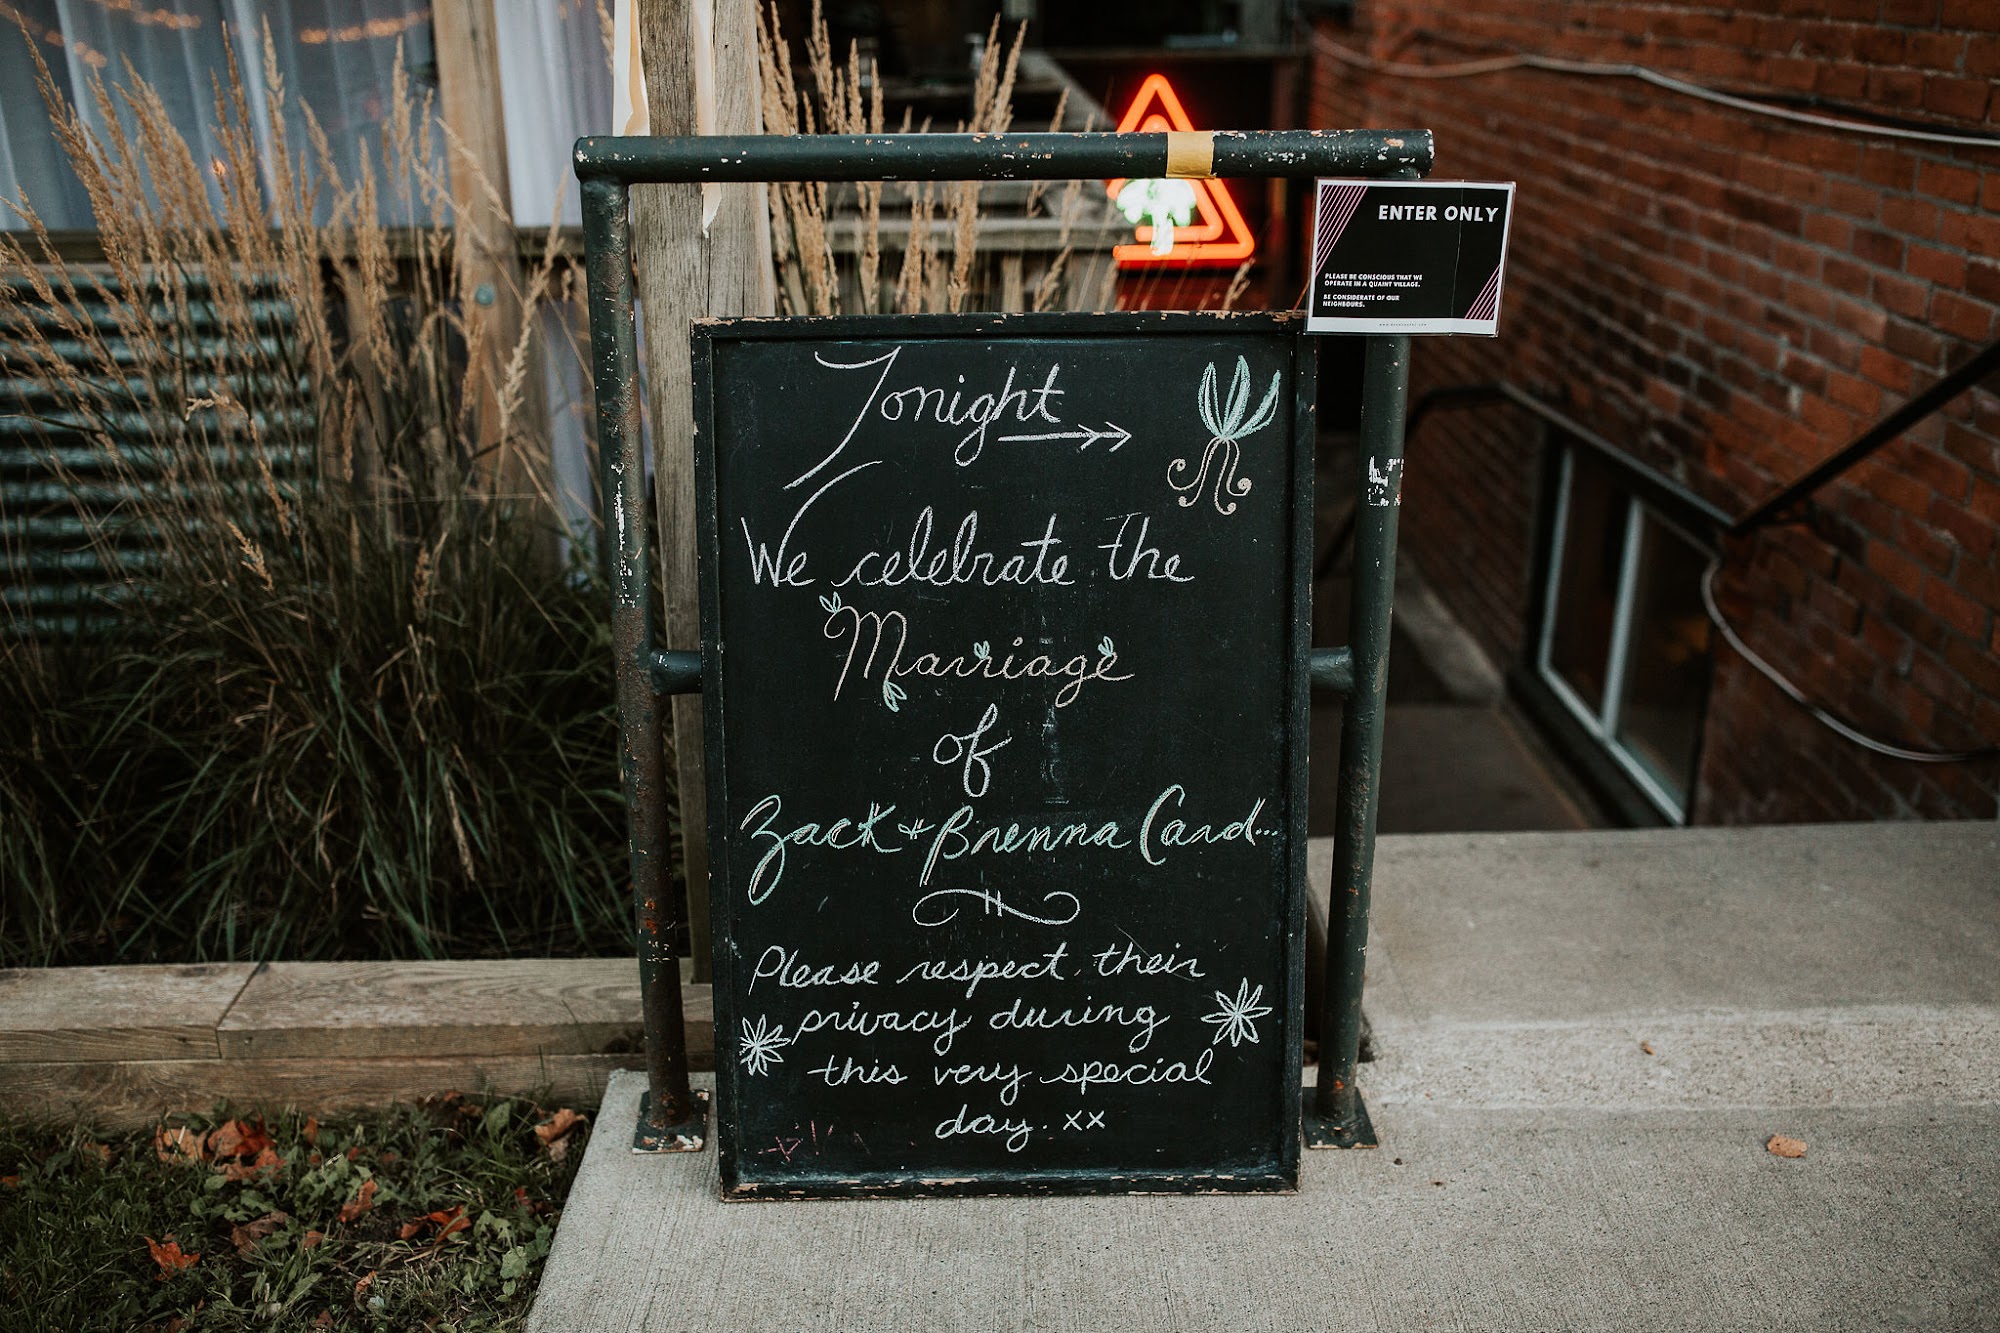 ENTER ONLY
PLEASE BE CONSCIOUS THAT WE
OPERATE IN A QUAINT VILLAGE.
BE CONSIDERATE OF OUR
NEIGHBOURS.
Tonight
We celebrate the
Marriage
of
Zack + Brenna Card...
Please respect their
privacy during
this very special
day. xx